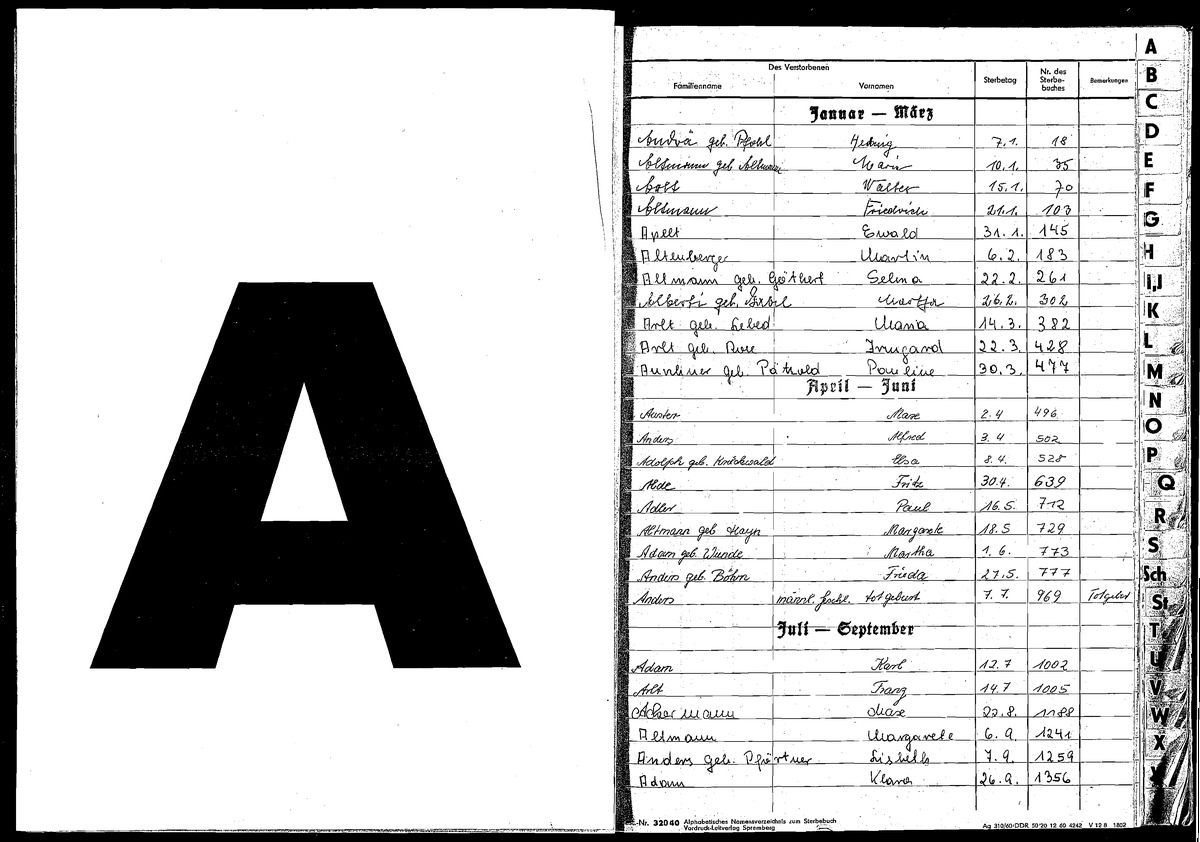 A
Des Verstorbenen
Familienname Vornamen Sterbetag Nr. des Sterbe-buches Bemerkungen
Januar — März
Andrä geb. Pfohl Hedwig 7.1. 18
Altmann geb Altmann Marie 10.1. 35
Walter 15.1. 70
Altmann Friedrich 21.1. 103
Apelt Ewald 31.1. 145
Altenberger Martin 6.2. 183
Altmann geb. Göthert Selma 22.2. 261
Alberti geb. Martha 26.2. 302
Arlt geb. Lebed Maria 14.3. 382
Arlt geb. Rose Irmgard 22.3. 428
geb. Pätzold Pauline 30.3. 477
April — Juni
Auster Max 2.4 496
Anders Alfred 3.4 502
Adolph geb. Elsa 8.4. 528
Abde Fritz 30.4. 639
Adler Paul 16.5. 712
Altmann geb Hayn Margarete 18.5 729
Adam geb. Wunde Martha 1.6. 773
Anders geb. Böhm Frieda 27.5. 777
Anders männl. Geschl. totgeburt 7.7. 969 Totgebut
Juli — September
Adam Karl 12.7 1002
Arlt Franz 14.7 1005
Ackermann Max 22.8. 1188
Altmann Margarete 6.9. 1241
Anders geb. Pförtner Lisbeth 7.9. 1259
Adam Klara 26.9. 1356
-Nr. 32040 Alphabetisches Namensverzeichnis zum Sterbebuch
Vordruck-Leitverlag Spremberg
Ag 310/60-DDR 50 20 12 60 4242 V 12 8 1802
A
B
C
D
E
F
G
H
I,J
K
L
M
N
O
P
Q
R
S
Sch
St
T
U
V
W
X
Y